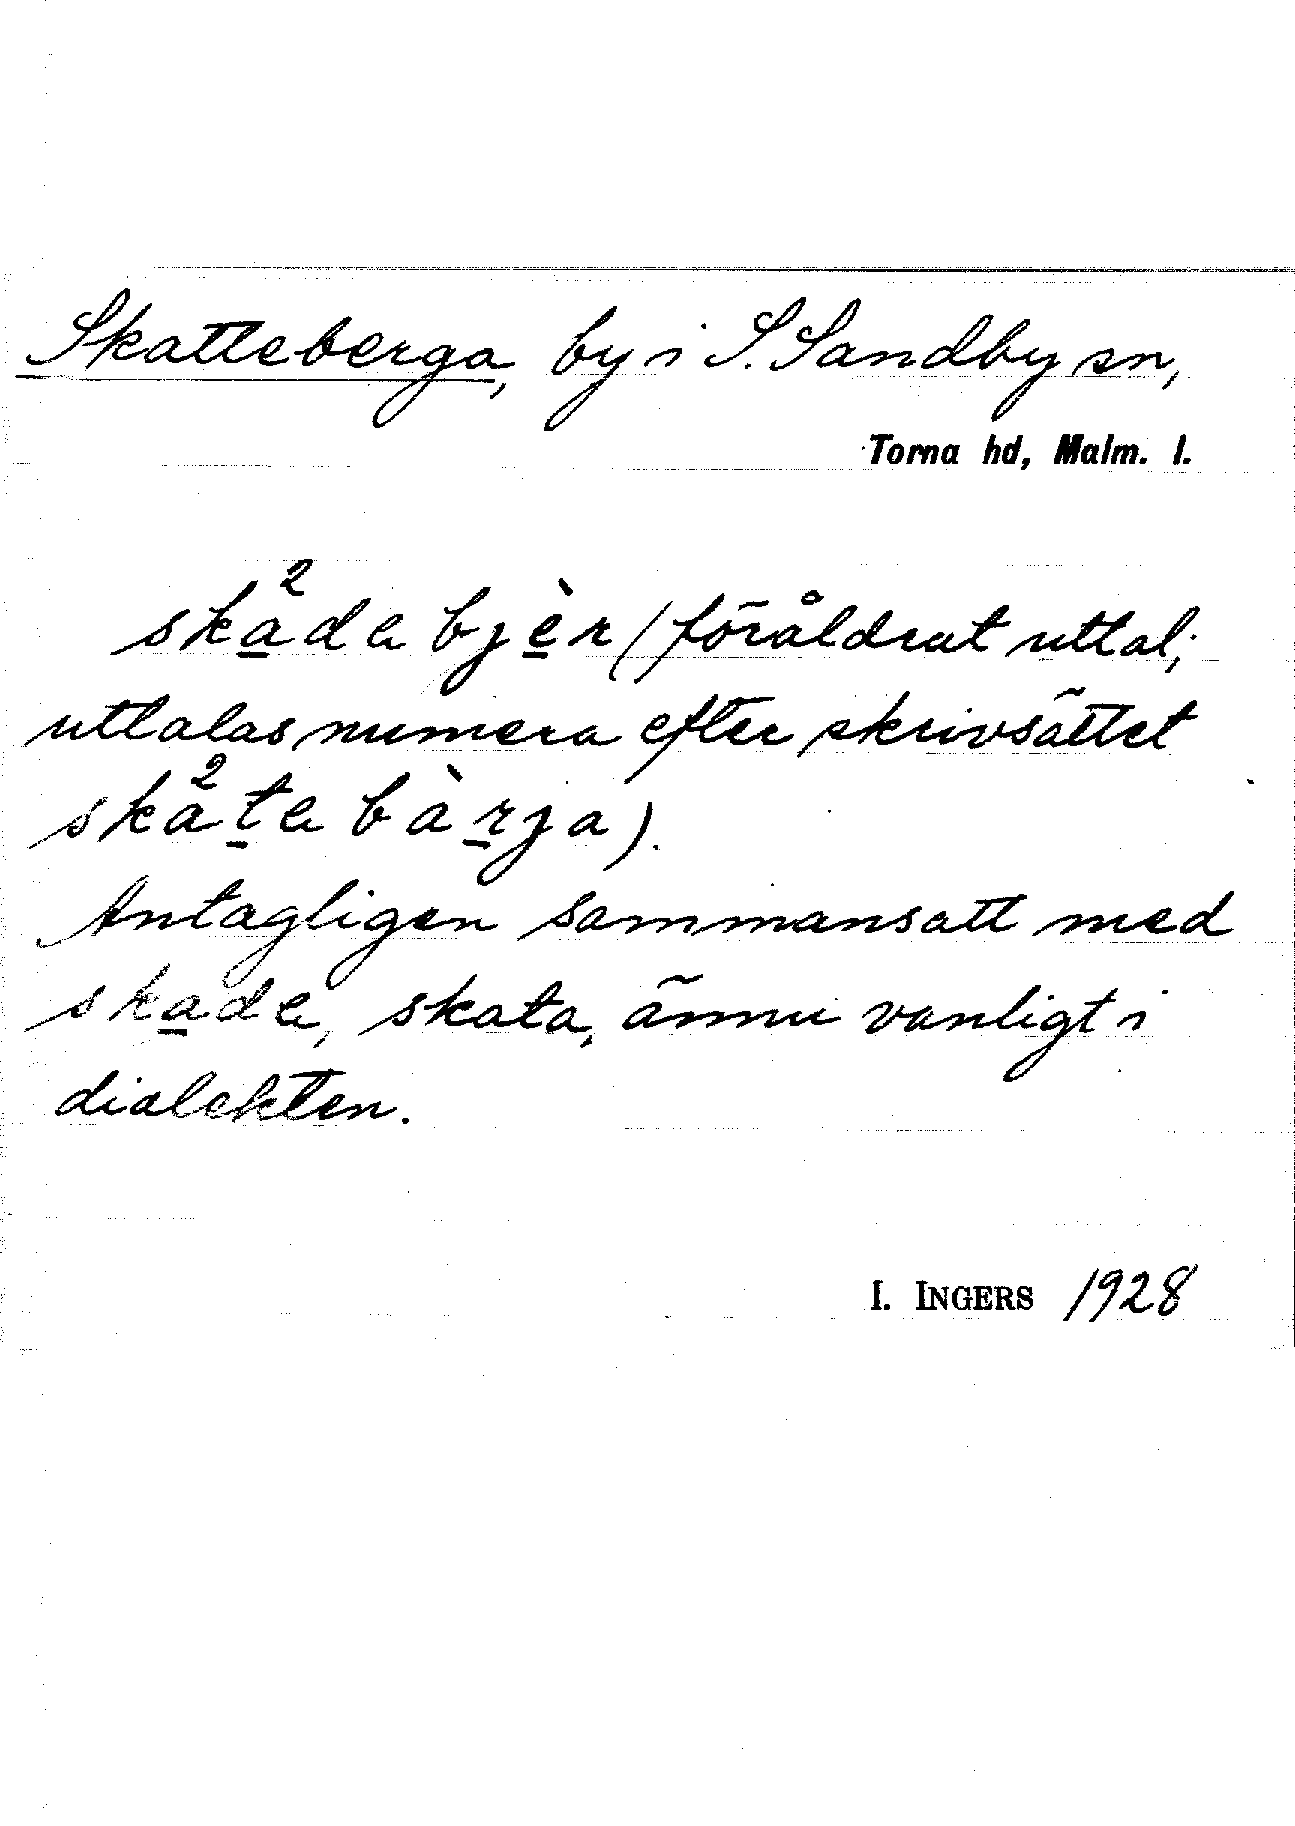 Skatteberga, by i S. Sandby sn,
Torna hd, Malm. l.
ska̲²de bjè̲r (föråldrat uttal;
uttalas numera efter skrivsättet
ska²t̲e bàr̲ja).
Antagligen sammansatt med
ska̲de, skata, ännu vanligt i
dialekten.
I. INGERS 1928